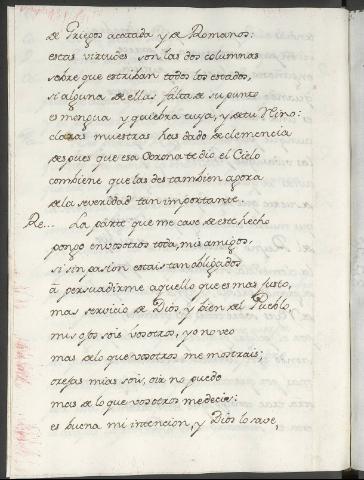 de Griegos acatada y de Romanos:
estas virtudes son las dos columnas
sobre que estriban todos los estados,
si alguna de ellas falta de su punto
es mengua y quiebra tuya, y de tu Reino:
claras muestras has dado de clemencia
despues que esa Corona te dió el Cielo
combiene que las des tambien agora
de la severidad tan importante.
Re... La parte que me cave de este hecho
pongo en vosotros toda, mis amigos.
si sin pasion estais tan obligados
á persuadirme aquello que es mas justo,
mas servicio de Dios, y bien del Pueblo,
mis ojos sois vosotros, yo no veo
mas de lo que vosotros me mostrais;
orejas mias sois, oir no puedo
mas de lo que vosotros me decis:
es buena mi intencion, y Dios lo save,